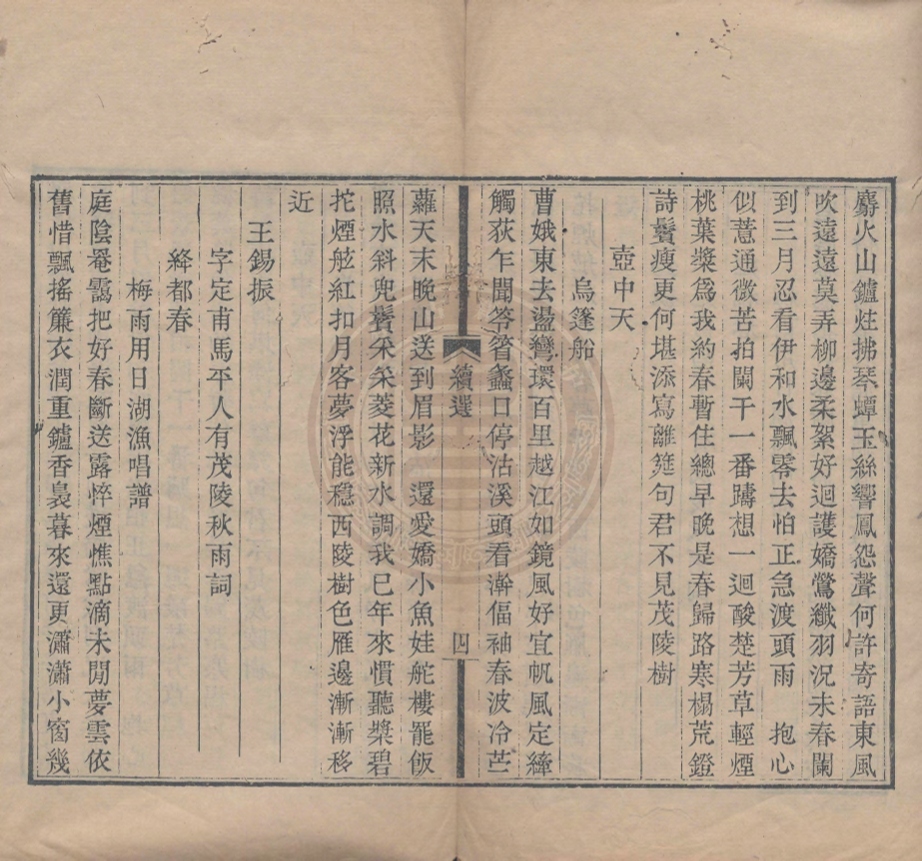 麝火山鑪炷拂琴蟫玉絲響鳳怨聲何許寄語東風
吹遠遠莫弄柳邊柔絮好迴護嬌鶯纖羽況未春闌
到三月忍看伊和水飄零去怕正急渡頭雨　抱心
似薏通微苦拍闌干一番躊想一迴酸楚芳草輕煙
桃葉槳爲我約春暫住總早晚是春歸路寒榻荒鐙
詩鬢瘦更何堪添寫離筵句君不見茂陵樹
壺中天
烏篷船
曹娥東去盪灣環百里越江如鏡風好宜帆風定縴
觸荻乍聞笭箵蠡口停沽溪頭看澣偪袖春波冷苎
續選
四
蘿天末晚山送到眉影　還愛嬌小魚娃舵樓罷飯
照水斜兜鬢采采菱花新水調我已年來慣聽槳碧
拕煙舷紅扣月客夢浮能穩西陵樹色雁邊漸漸移
近
王錫振
字定甫馬平人有茂陵秋雨詞
絳都春
梅雨用日湖漁唱譜
庭陰罨靄把好春斷送露悴煙憔點滴未閒夢雲依
舊惜飄搖簾衣潤重鑪香裊暮來還更瀟瀟小窗幾